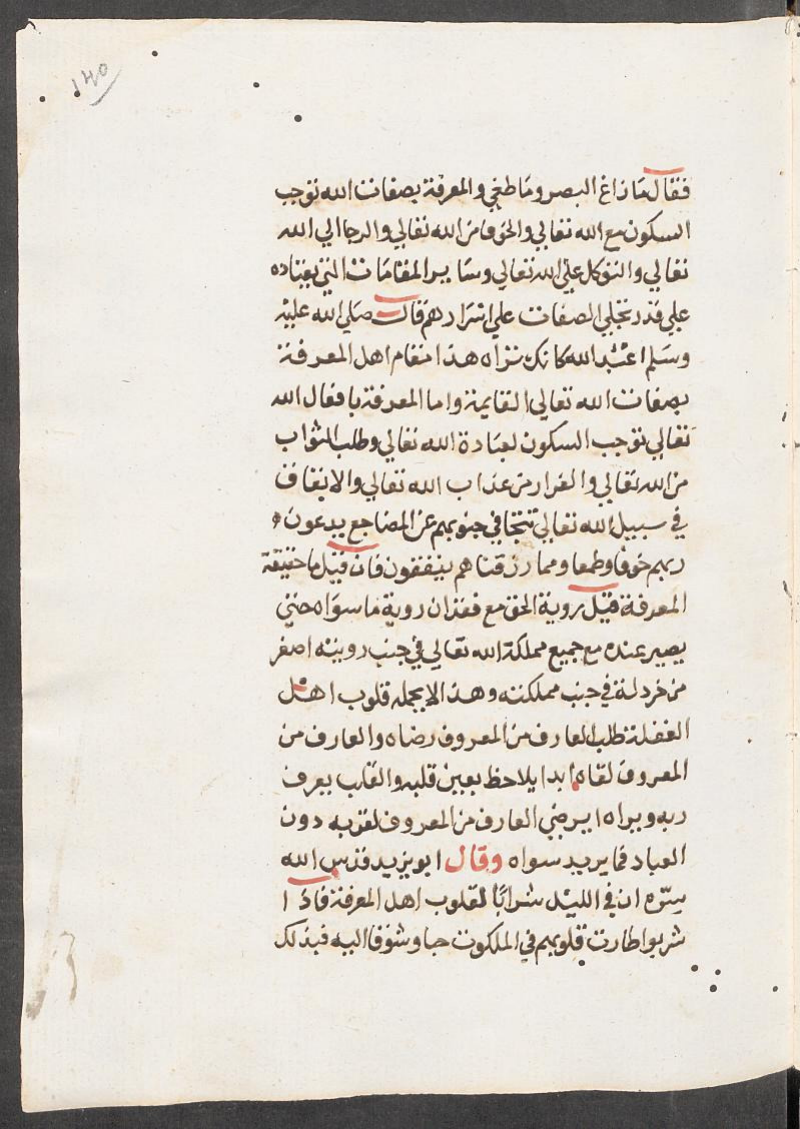 ١٣٥
فقال ما زاغ البصر وما طغي والمعرفة بصفات الله توجب
السكون مع الله تعالي والخوف من الله تعالي والرجا الي الله
تعالي والتوكل علي الله تعالي وساير المقامات التي بعباده
علي قدر تجلي الصفات علي اسرارهم قال صلي الله عليه
وسلم اعبد الله كانك تراه هذا مقام اهل المعرفة
بصفات الله تعالي القايمة واما المعرفة بافعال الله
تعالي توجب السكون لعبادة الله تعالي وطلب الثواب
من الله تعالي والفرار من عذاب الله تعالي والانفاق
في سبيل الله تعالي تتجافي جنوبهم عن المضاجع يدعون
ربهم خوفا وطمعا ومما رزقناهم ينفقون فان قيل ما حقيقة
المعرفة قيل روية الحق مع فقدان روية ما سواه حتي
يصير عنده مع جميع مملكة الله تعالي في جنب رويته اصغر
من خردلة في جنب مملكته وهذا لا يحمله قلوب اهل
الغفلة تطلب العارف من المعروف رضاه والعارف من
المعروف لقاه ابدا يلاحظ بعين قلبه والقلب يعرف
ربه ويراه ا يرضي العارف من المعروف لقربه دون
العباد فما يريد سواه وقال ابو يزيد قدس الله
سره ان في الليل شرابا لقلوب اهل المعرفة فاذا
شربوا طارت قلوبهم في الملكوت حبا وشوقا اليه فبذلك